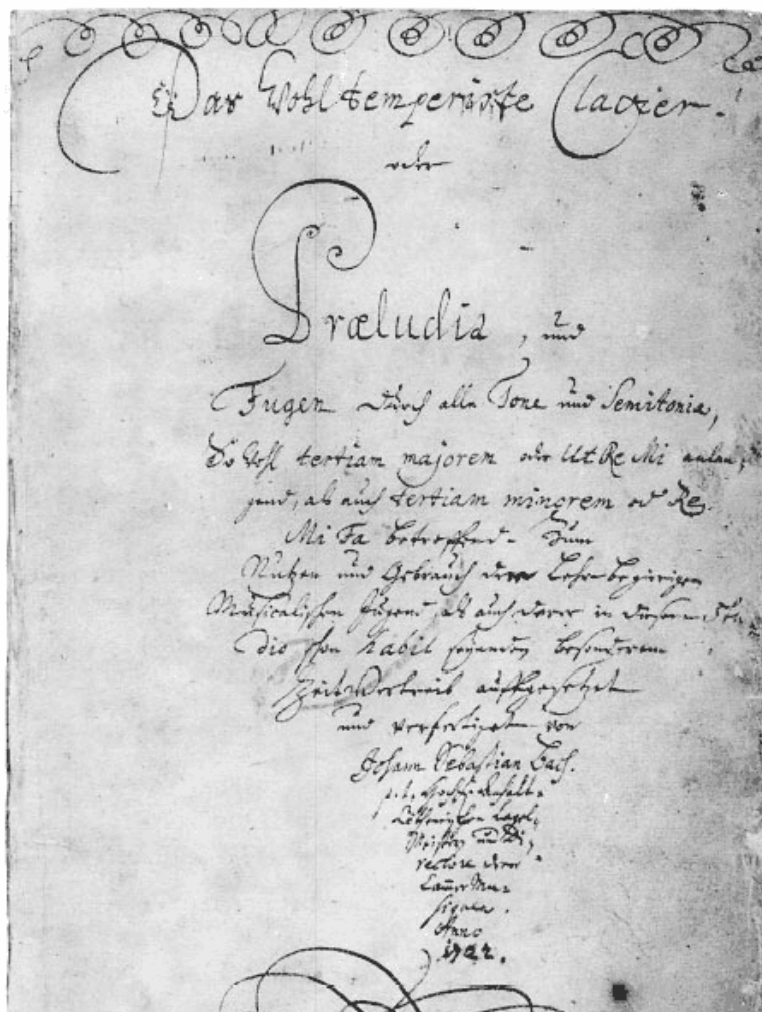 Das Wohltemperirte Clavier.
oder
Præludia, und
Fugen durch alle Tone und Semitonia,
So wohl tertiam majorem oder Ut Re Mi anlan-
gend, als auch tertiam minorem oder Re
Mi Fa betreffend. Zum
Nutzen und Gebrauch der Lehr-begierigen
Musicalischen Jugend, als auch derer in diesem stu-
dio schon habil seyenden besonderem
Zeitvertreib auffgesetzet
und verfertiget von
Johann Sebastian Bach.
p. t. Hochf. Anhalt-
Cöthenischen Capel-
Meistern und Di-
rectore derer
Cammer Mu-
siquen.
Anno
1722.